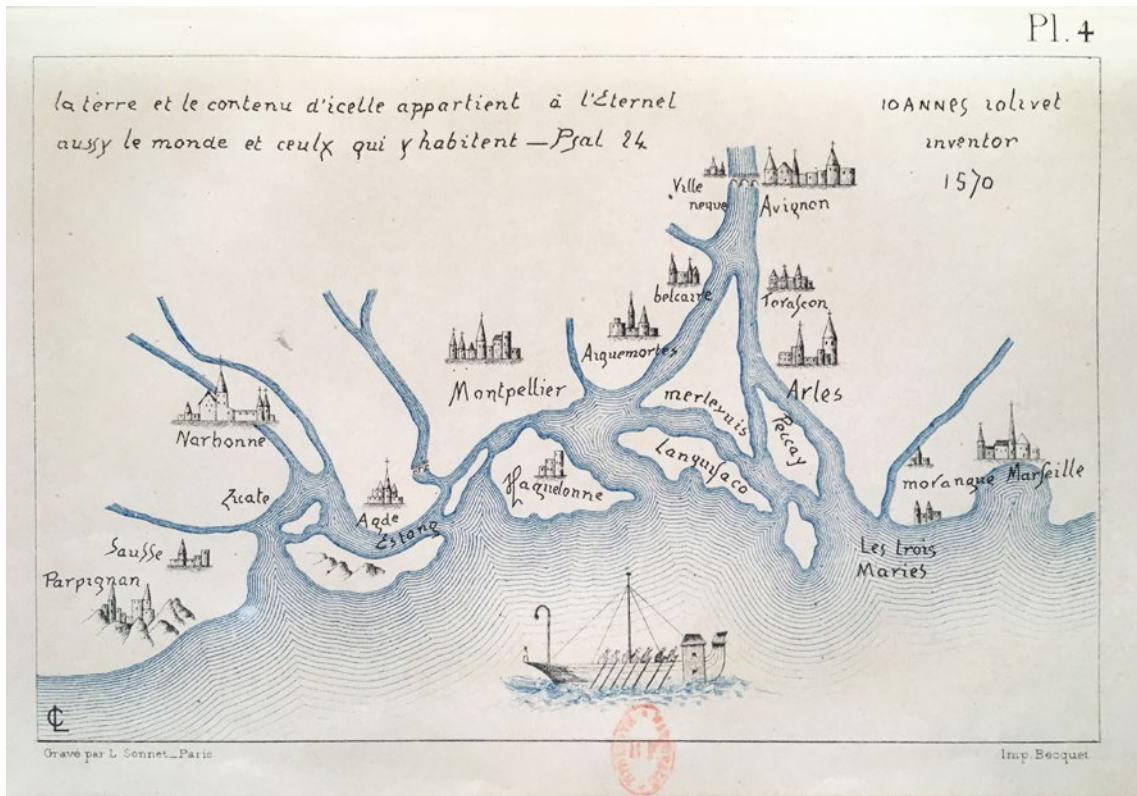 Pl. 4
la terre et le contenu d'icelle appartient à l'Eternel
aussy le monde et ceulx qui y habitent — Psal 24
IOANNES IOLIVET
inventor
1570
Ville
neuve
Avignon
belcaire
Tarascon
Aiguemortes
Arles
Montpellier
merlevuis
Peccay
Languisaco
Narbonne
Maguelonne
moranque
Marseille
Zuate
Agde
Estang
Les trois
Maries
Sausse
Parpignan
CL
Gravé par L. Sonnet_Paris.
Imp. Becquet